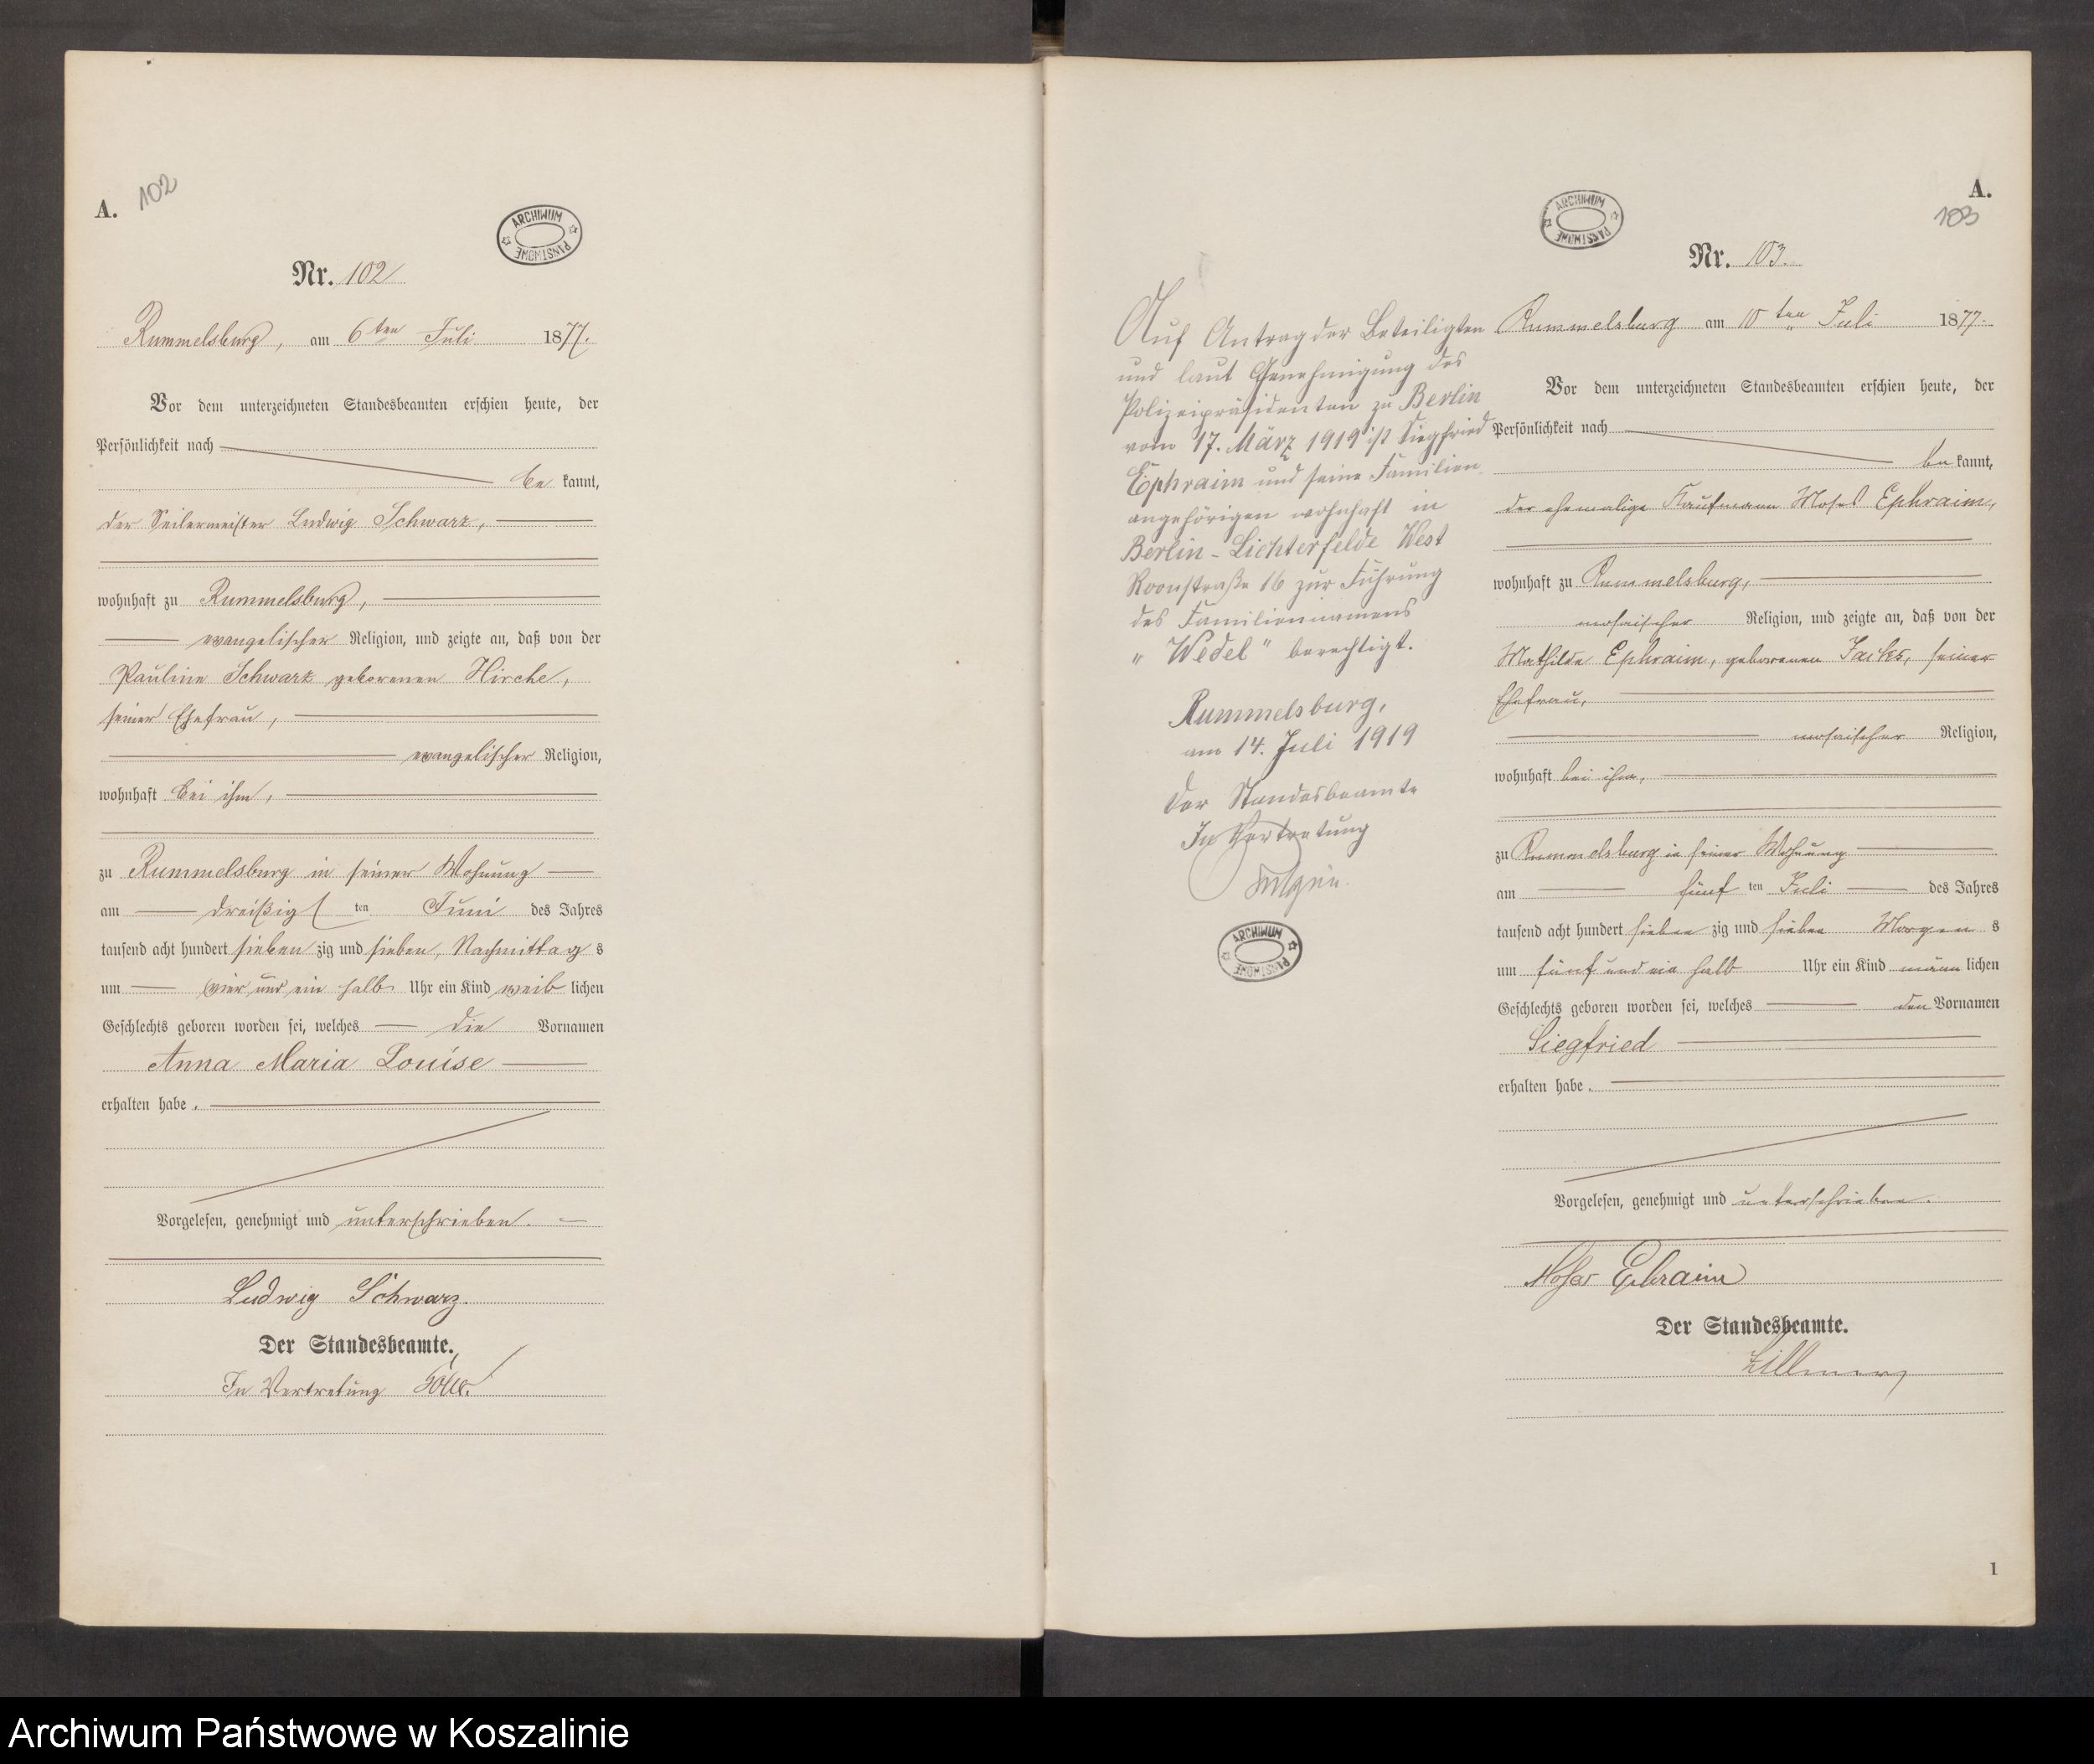 A. 102
ARCHIWUM PAŃSTWOWE
Nr. 102
Rummelsburg, am 6ten Juli 1877.
Vor dem unterzeichneten Standesbeamten erschien heute, der
Persönlichkeit nach
be kannt,
der Seilermeister Ludwig Schwarz,
wohnhaft zu Rummelsburg,
evangelischer Religion, und zeigte an, daß von der
Pauline Schwarz geborenen Hirche,
seiner Ehefrau,
evangelischer Religion,
wohnhaft bei ihm,
zu Rummelsburg in seiner Wohnung
am dreißigs ten Juni des Jahres
tausend acht hundert sieben zig und sieben, Nachmittag s
um vier und ein halb Uhr ein Kind weib lichen
Geschlechts geboren worden sei, welches die Vornamen
Anna Maria Louise
erhalten habe.
Vorgelesen, genehmigt und unterschrieben.
Ludwig Schwarz.
Der Standesbeamte.
In Vertretung
A.
103
ARCHIWUM PAŃSTWOWE
Nr. 103.
Auf Antrag der Beteiligten
und laut Genehmigung des
Polizeipräsidenten zu Berlin
vom 17. März 1919 ist Siegfried
Ephraim und seine Familien
angehörigen wohnhaft in
Berlin-Lichterfelde West
Roonstraße 16 zur Führung
des Familiennamens
„Wedel" berechtigt.
Rummelsburg,
am 14. Juli 1919
Der Standesbeamte
In Vertretung
ARCHIWUM PAŃSTWOWE
Rummelsburg am 10ten Juli 1877.
Vor dem unterzeichneten Standesbeamten erschien heute, der
Persönlichkeit nach
be kannt,
der ehemalige Kaufmann Moses Ephraim,
wohnhaft zu Rummelsburg,
mosaischer Religion, und zeigte an, daß von der
Mathilde Ephraim, geborenen Jacks, seiner
Ehefrau,
mosaischer Religion,
wohnhaft bei ihm,
zu Rummelsburg in seiner Wohnung
am fünf ten Juli des Jahres
tausend acht hundert sieben zig und sieben Morgen s
um fünf und ein halb Uhr ein Kind männ lichen
Geschlechts geboren worden sei, welches den Vornamen
Siegfried
erhalten habe.
Vorgelesen, genehmigt und unterschrieben.
Moses Ephraim
Der Standesbeamte.
Zillmer
1
Archiwum Państwowe w Koszalinie